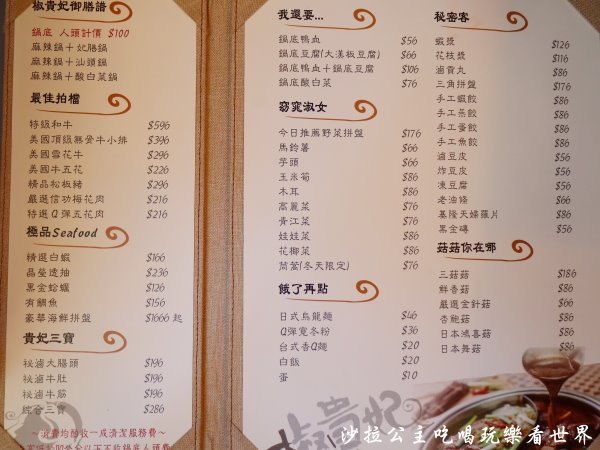 椒貴妃御膳譜
鍋底 人頭計價 $100
麻辣鍋+妃膳鍋
麻辣鍋+汕頭鍋
麻辣鍋+酸白菜鍋
最佳拍檔
特級和牛 $596
美國頂級無骨牛小排 $396
美國雪花牛 $296
美國牛五花 $226
精品松板豬 $296
嚴選信功梅花肉 $216
特選Q彈五花肉 $216
極品Seafood
精選白蝦 $166
晶瑩透抽 $236
黑金蛤蠣 $126
有鯛魚 $156
豪華海鮮拼盤 $1666 起
貴妃三寶
祕滷大腸頭 $196
祕滷牛肚 $196
祕滷牛筋 $196
綜合三寶 $286
~消費均酌收一成清潔服務費~
我還要...
鍋底鴨血 $56
鍋底豆腐(大漢板豆腐) $66
鍋底鴨血+鍋底豆腐 $106
鍋底酸白菜 $76
窈窕淑女
今日推薦野菜拼盤 $176
馬鈴薯 $66
芋頭 $66
玉米筍 $86
木耳 $86
高麗菜 $76
青江菜 $76
娃娃菜 $86
花椰菜 $86
茼蒿(冬天限定) $76
餓了再點
日式烏龍麵 $46
Q彈寬冬粉 $36
台式香Q麵 $20
白飯 $20
蛋 $10
秘密客
蝦漿 $126
花枝漿 $116
滷貢丸 $86
三角拼盤 $176
手工蝦餃 $86
手工燕餃 $86
手工蛋餃 $86
手工魚餃 $86
滷豆皮 $56
炸豆皮 $56
凍豆腐 $56
老油條 $66
基隆天婦羅片 $86
黑金磚 $56
菇菇你在哪
三菇菇 $186
鮮香菇 $86
嚴選金針菇 $66
杏鮑菇 $86
日本鴻喜菇 $86
日本舞菇 $86
椒貴妃
沙拉公主吃喝玩樂看世界